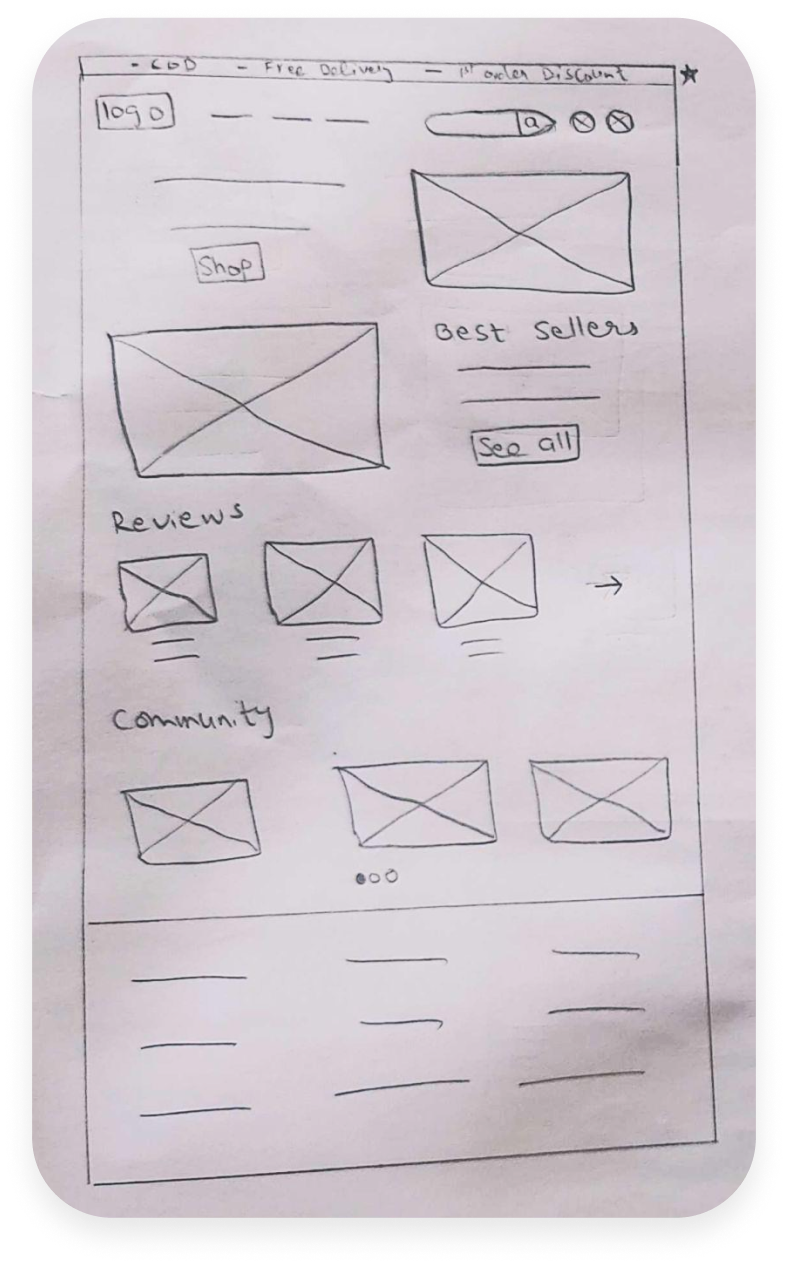 - COD - Free Delivery - 1st order Discount
logo
Shop
Best Sellers
See all
Reviews
Community